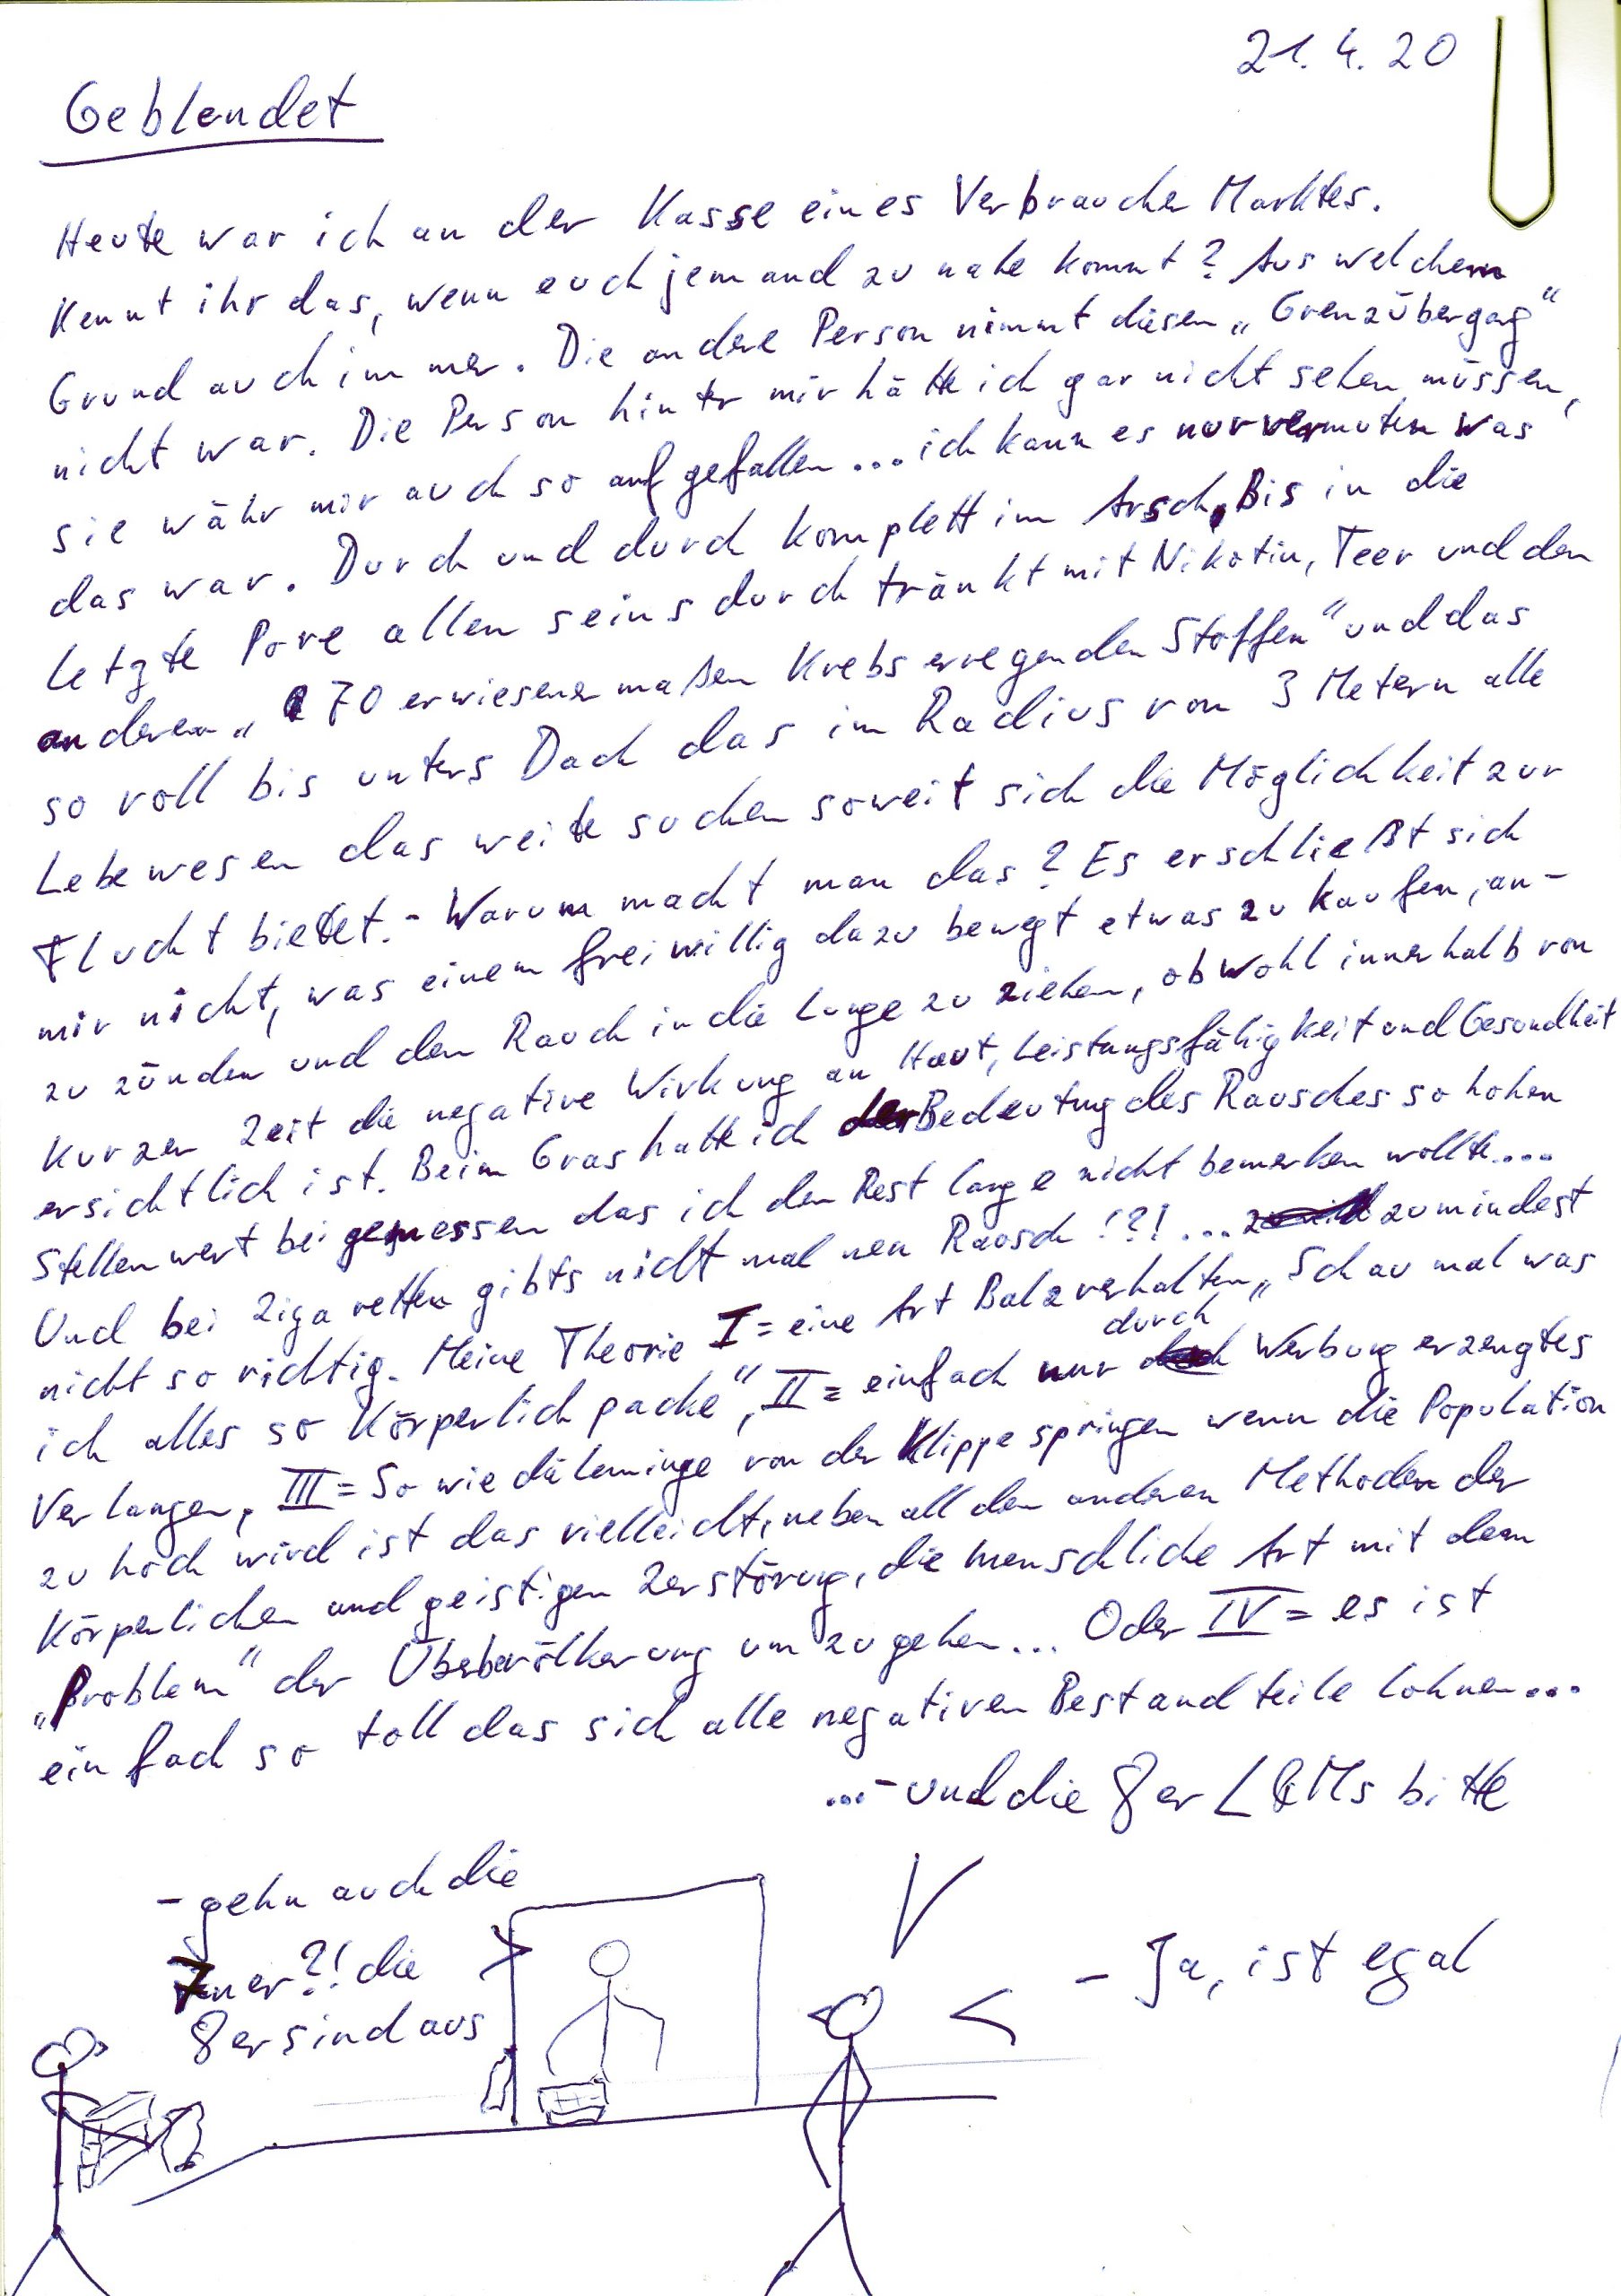 21.4.20
Geblendet
Heute war ich an der Kasse eines Verbraucher Marktes.
Kennt ihr das, wenn euch jemand zu nahe kommt? Aus welchem
Grund auch immer. Die andere Person nimmt diesen „Grenzübergag“
nicht war. Die Person hinter mir hätte ich gar nicht sehen müssen,
sie währ mir auch so aufgefallen... ich kann es nur vermuten was
das war. Durch und durch komplett im Arsch, Bis in die
letzte Pore allen seins durchtränkt mit Nikotin, Teer und den
anderen „70 erwiesenermaßen Krebserregenden Stoffen“ und das
so voll bis unters Dach das im Radius von 3 Metern alle
Lebewesen das weite suchen soweit sich die Möglichkeit zur
Flucht bietet. - Warum macht man das? Es erschließt sich
mir nicht, was einem freiwillig dazu bewegt etwas zu kaufen, an-
zu zünden und den Rauch in die Lunge zu ziehen, obwohl innerhalb von
kurzer Zeit die negative Wirkung an Haut, Leistungsfähigkeit und Gesundheit
ersichtlich ist. Beim Gras hatte ich der Bedeutung des Rausches so hohen
Stellenwert beigemessen das ich den Rest lange nicht bemerken wollte....
Und bei Zigaretten gibts nicht mal nen Rausch!?!... zumindest
nicht so richtig. Meine Theorie I = eine Art Balzverhalten „Schau mal was
ich alles so Körperlich packe“, II = einfach nur durch Werbung erzeugtes
Verlangen, III = So wie die Leminge von der Klippe springen wenn die Population
zu hoch wird ist das vielleicht, neben all den anderen Methoden der
Körperlichen und geistigen Zerstörung, die menschliche Art mit dem
„Problem“ der Überbevölkerung um zu gehen... Oder IV = es ist
einfach so toll das sich alle negativen Bestandteile lohnen...
...- und die 8er L&Ms bitte
- gehn auch die
7ner?! die
8er sind aus
- Ja, ist egal